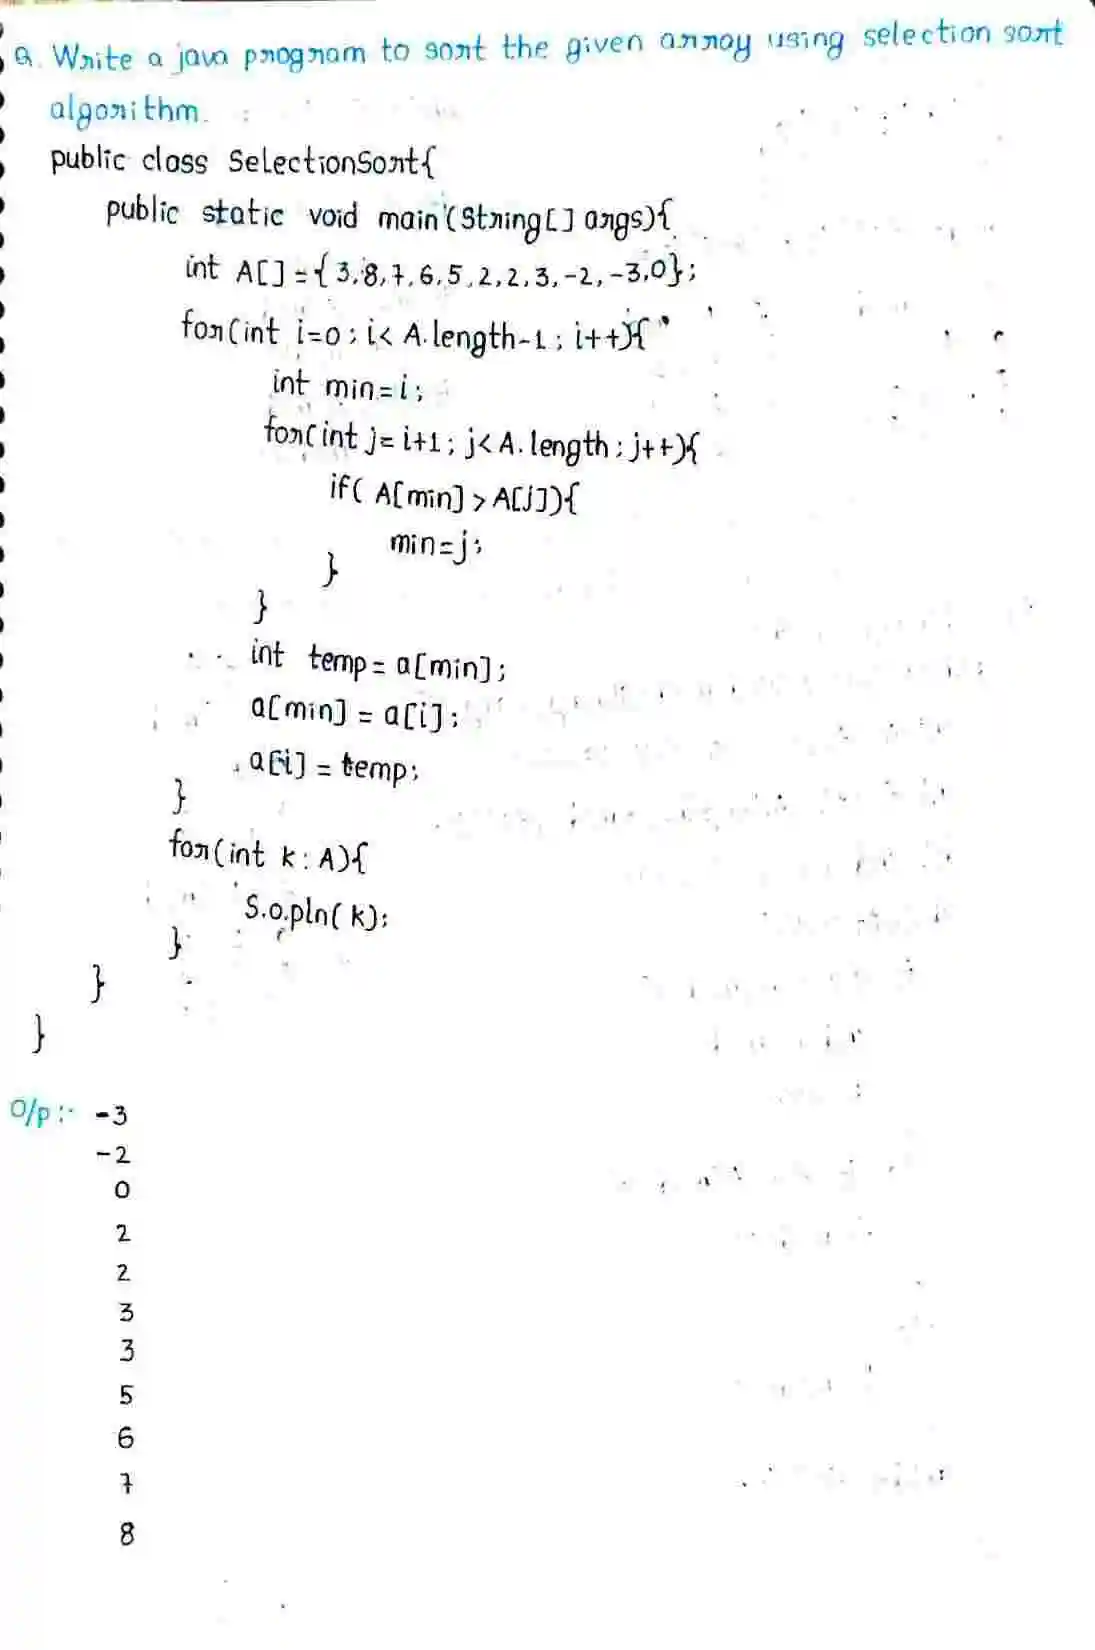 Q. Write a java program to sort the given array using selection sort
algorithm.
public class SelectionSort{
public static void main(String[] args){
int A[]={3,8,7,6,5,2,2,3,-2,-3,0};
for(int i=0; i< A.length-1; i++){
int min=i;
for(int j=i+1; j<A.length; j++){
if( A[min] > A[j]){
min=j;
}
}
int temp= a[min];
a[min] = a[i];
a[i] = temp;
}
for(int k: A){
S.o.pln( k);
}
}
}
O/p :- -3
-2
0
2
2
3
3
5
6
7
8